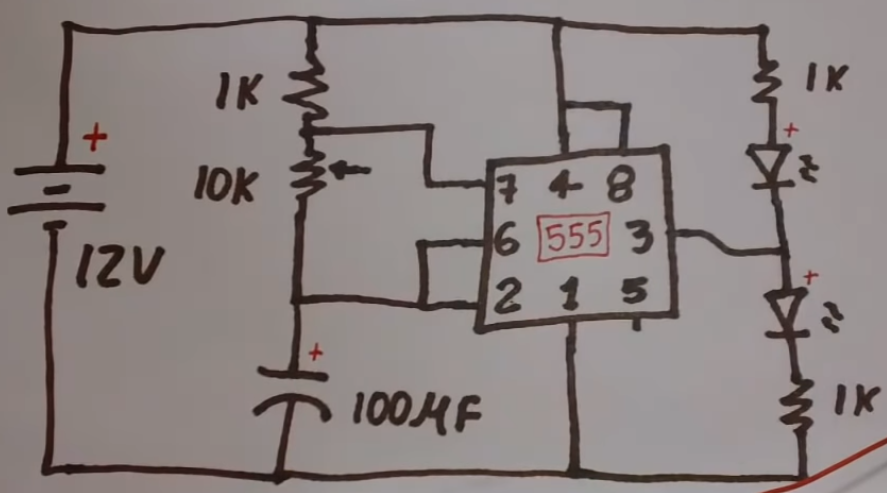 +
12V
1K
10K
+
100µF
7 4 8
6 555 3
2 1 5
1K
+
+
1K